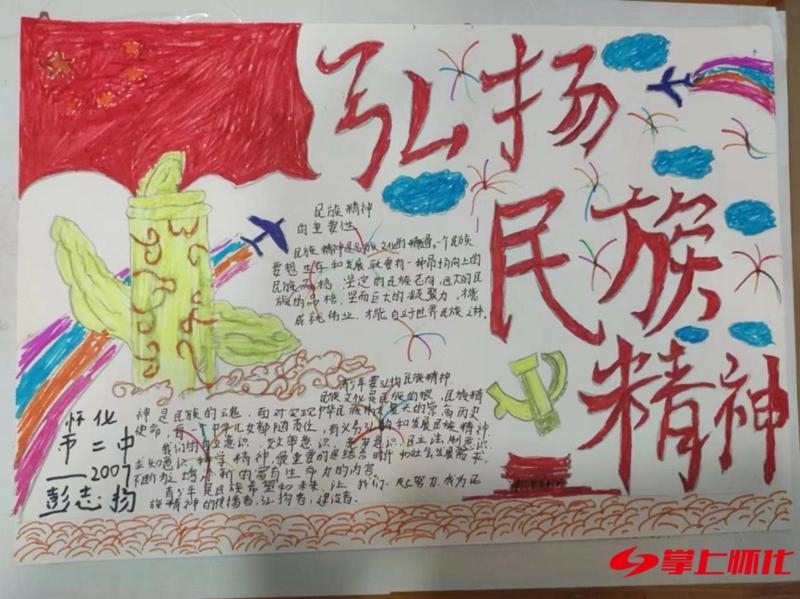 弘扬
民族
精神
民族精神
的重要性
民族精神是民族文化的
个民族
要想生存和发展,就要有一种昂扬向上的
民族品格,坚定的民族志向,远大的民
族的品格,坚而巨大的凝聚力,才能
成就伟业,才能自立于世界民族之林。
青年要弘扬民族精神
民族文化是民族的根,民族精
神是民族的魂,面对实现中华民族伟大复兴的崇高历史
使命,每一个中华儿女都随责任,有义务弘扬和发展民族精神
我们的自立意识,竞争意识,效率意识,民主法制意识
求知意识,科学精神,最重要的是结合时代和社会发展需求,
不断为之增添新的富有生命力的内容
青少年是民族希望和未来,让我们一起努力,成为民
族精神的传播者,弘扬者,建设者。
怀化
市二中
2007
彭志扬
掌上怀化